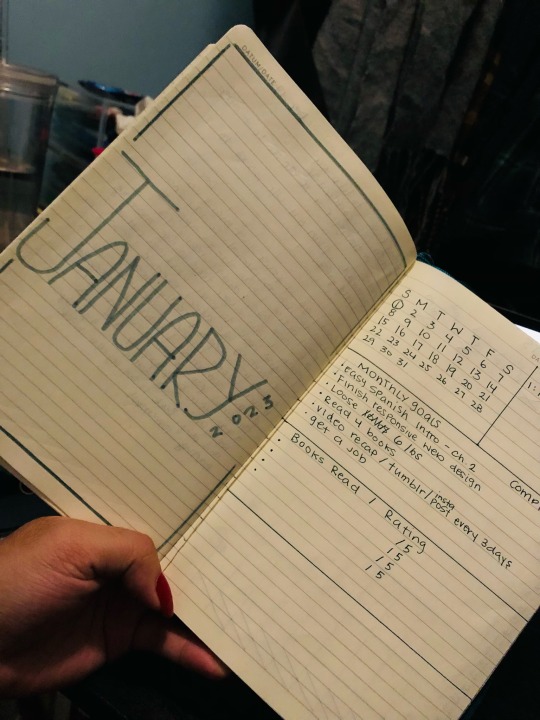 DATUM/DATE
JANUARY
2023
S M T W T F S
1 2 3 4 5 6 7
8 9 10 11 12 13 14
15 16 17 18 19 20 21
22 23 24 25 26 27 28
29 30 31
MONTHLY GOALS
• Easy Spanish Intro - ch. 2
• Finish responsive web design
• Loose 6 lbs
• Read 4 books
• video recap / tumblr / insta post every 3 days
• get a job
Books Read / Rating
/5
/5
/5
/5
Comp